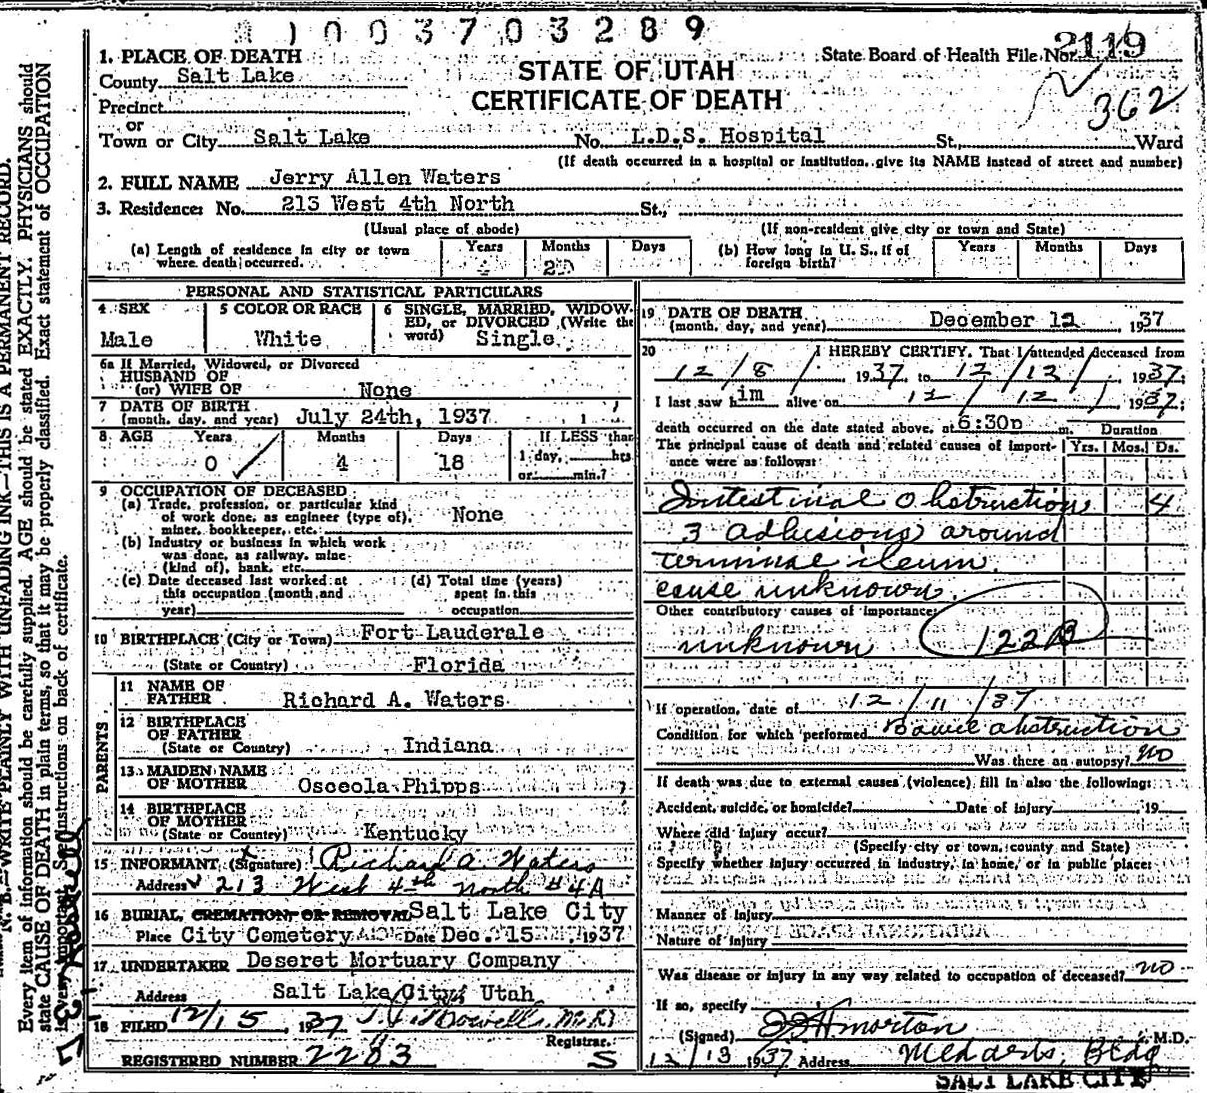 1003703289
1. PLACE OF DEATH
County Salt Lake
Precinct
or
Town or City Salt Lake No. L.D.S. Hospital St., Ward
(If death occurred in a hospital or institution, give its NAME instead of street and number)
STATE OF UTAH
CERTIFICATE OF DEATH
State Board of Health File No. 2119
362
2. FULL NAME Jerry Allen Waters
3. Residence: No. 213 West 4th North St.,
(Usual place of abode) (If non-resident give city or town and State)
(a) Length of residence in city or town where death occurred. Years Months Days
(b) How long in U. S., if of foreign birth? Years Months Days
PERSONAL AND STATISTICAL PARTICULARS
4 SEX
Male
5 COLOR OR RACE
White
6 SINGLE, MARRIED, WIDOW-
ED, or DIVORCED (Write the
word) Single
6a If Married, Widowed, or Divorced
HUSBAND OF
(or) WIFE OF None
7 DATE OF BIRTH
(month, day, and year) July 24th, 1937
8 AGE Years Months Days If LESS than
1 day, hrs
or min.?
0 4 18
9 OCCUPATION OF DECEASED
(a) Trade, profession, or particular kind
of work done, as engineer (type of),
miner, bookkeeper, etc. None
(b) Industry or business in which work
was done, as railway, mine
(kind of), bank, etc.
(c) Date deceased last worked at
this occupation (month and
year)
(d) Total time (years)
spent in this
occupation
10 BIRTHPLACE (City or Town) Fort Lauderale
(State or Country) Florida
PARENTS
11 NAME OF
FATHER Richard A. Waters
12 BIRTHPLACE
OF FATHER
(State or Country) Indiana
13 MAIDEN NAME
OF MOTHER Osceola Phipps
14 BIRTHPLACE
OF MOTHER
(State or Country) Kentucky
15 INFORMANT (Signature) Richard A. Waters
Address 213 West 4th North #4A
16 BURIAL, CREMATION, OR REMOVAL Salt Lake City
Place City Cemetery Date Dec. 15 1937
17 UNDERTAKER Deseret Mortuary Company
Address Salt Lake City, Utah
18 FILED 12/15, 1937
Registrar.
REGISTERED NUMBER 2283 S
19 DATE OF DEATH
(month, day, and year) December 12 1937
20 I HEREBY CERTIFY, That I attended deceased from
12/8/ 1937, to 12/12/, 1937;
I last saw him alive on 12/12/ 1937;
death occurred on the date stated above, at 6:30p m. Duration
The principal cause of death and related causes of import-
ance were as follows: Yrs. Mos. Ds.
Intestinal Obstruction 4
3 adhesions around
terminal ileum.
cause unknown.
Other contributory causes of importance:
unknown 122B
If operation, date of 12/11/37
Condition for which performed Bowel obstruction
Was there an autopsy? no
If death was due to external causes (violence) fill in also the following:
Accident, suicide, or homicide? Date of injury 19
Where did injury occur?
(Specify city or town, county and State)
Specify whether injury occurred in industry, in home, or in public place:
Manner of injury
Nature of injury
Was disease or injury in any way related to occupation of deceased? no
If so, specify
(Signed) Morton M.D.
12/13 1937 Address Bldg
SALT LAKE CITY
N. B.—WRITE PLAINLY WITH UNFADING INK—THIS IS A PERMANENT RECORD.
Every item of information should be carefully supplied. AGE should be stated EXACTLY. PHYSICIANS should
state CAUSE OF DEATH in plain terms, so that it may be properly classified. Exact statement of OCCUPATION
is very important. See instructions on back of certificate.